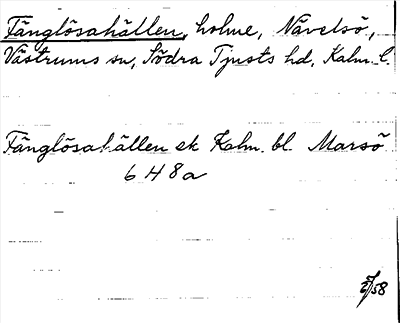 Fänglösahällen, holme, Návelsö,
Västrums sn, Södra Tjusts hd, Kalm. l.
Fänglösahällen ek Kalm. bl. Marsö
6 H 8 a